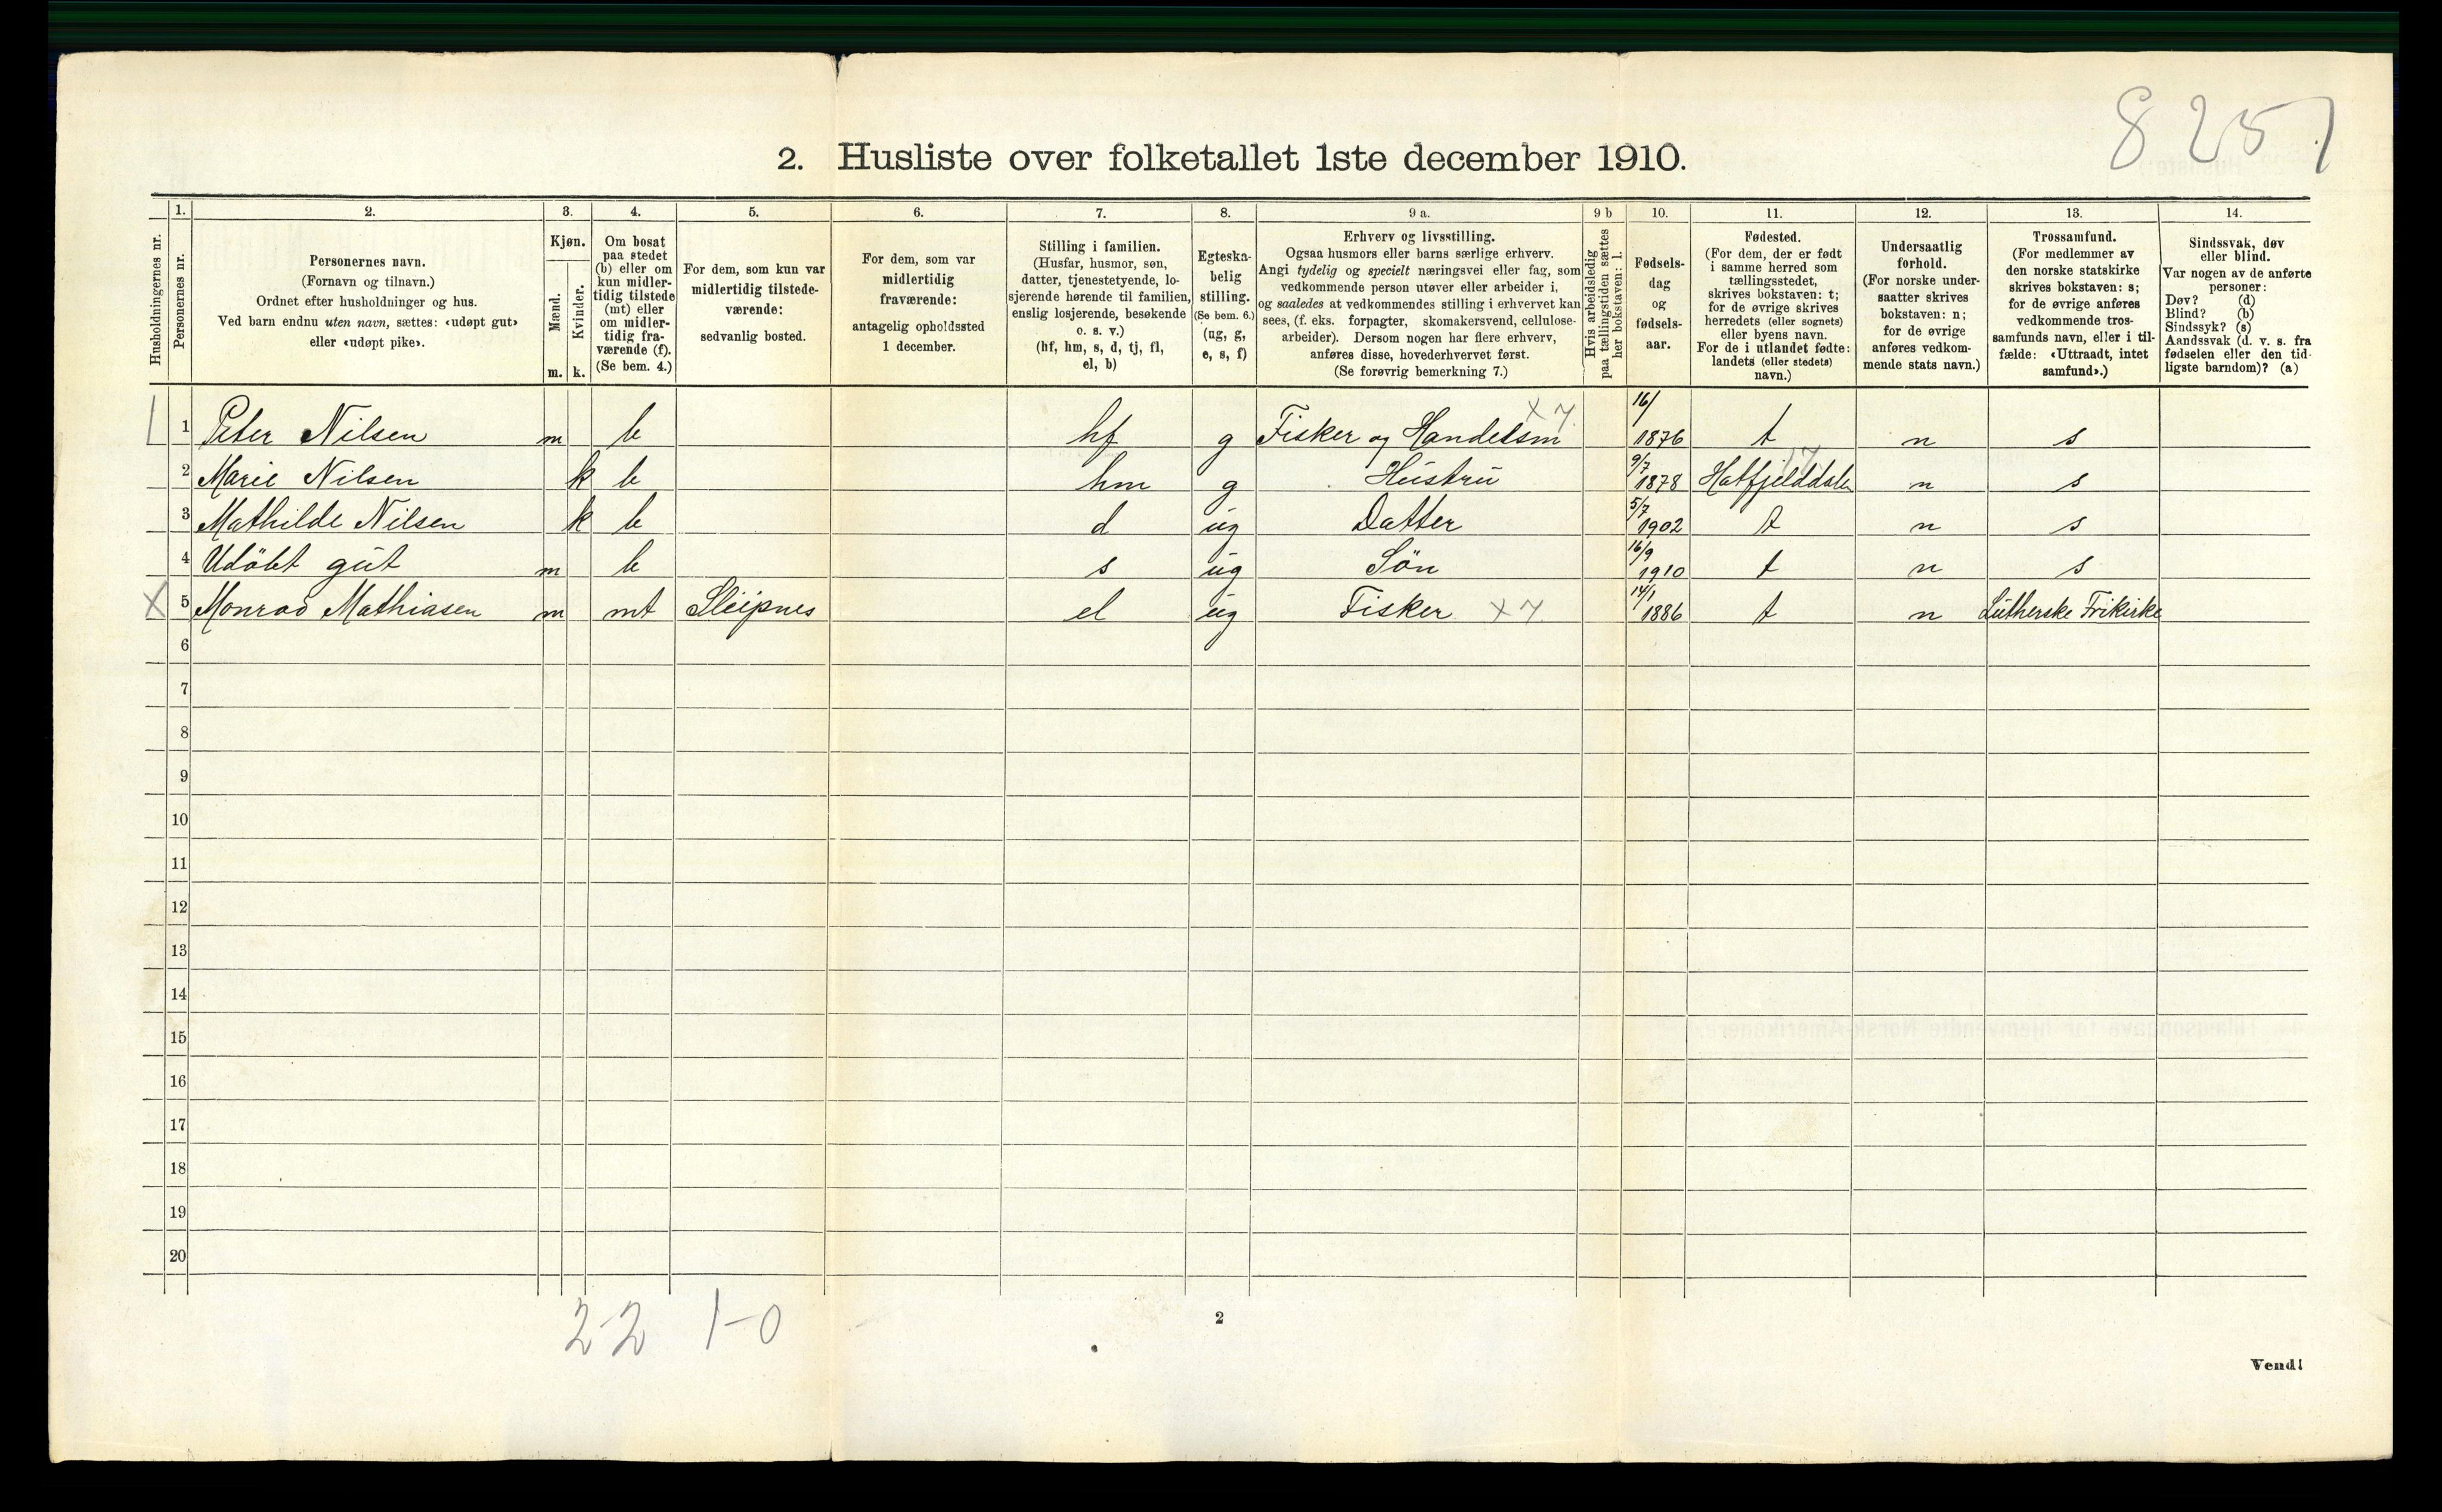 8257
2. Husliste over folketallet 1ste december 1910.
Husholdningernes nr.
1.
Personernes nr.
2.
Personernes navn.
(Fornavn og tilnavn.)
Ordnet efter husholdninger og hus.
Ved barn endnu uten navn, sættes: «udøpt gut»
eller «udøpt pike».
3.
Kjøn.
Mænd.
Kvinder.
m. k.
4.
Om bosat
paa stedet
(b) eller om
kun midler-
tidig tilstede
(mt) eller
om midler-
tidig fra-
værende (f).
(Se bem. 4.)
5.
For dem, som kun var
midlertidig tilstede-
værende:
sedvanlig bosted.
6.
For dem, som var
midlertidig
fraværende:
antagelig opholdssted
1 december.
7.
Stilling i familien.
(Husfar, husmor, søn,
datter, tjenestetyende, lo-
sjerende hørende til familien,
enslig losjerende, besøkende
o. s. v.)
(hf, hm, s, d, tj, fl,
el, b)
8.
Egteska-
belig
stilling.
(Se bem. 6.)
(ug, g,
e, s, f)
9 a.
Erhverv og livsstilling.
Ogsaa husmors eller barns særlige erhverv.
Angi tydelig og specielt næringsvei eller fag, som
vedkommende person utøver eller arbeider i,
og saaledes at vedkommendes stilling i erhvervet kan
sees, (f. eks. forpagter, skomakersvend, cellulose-
arbeider). Dersom nogen har flere erhverv,
anføres disse, hovederhvervet først.
(Se forøvrig bemerkning 7.)
9 b
Hvis arbeidsledig
paa tællingstiden sættes
her bokstaven: l.
10.
Fødsels-
dag
og
fødsels-
aar.
11.
Fødested.
(For dem, der er født
i samme herred som
tællingsstedet,
skrives bokstaven: t;
for de øvrige skrives
herredets (eller sognets)
eller byens navn.
For de i utlandet fødte:
landets (eller stedets)
navn.)
12.
Undersaatlig
forhold.
(For norske under-
saatter skrives
bokstaven: n;
for de øvrige
anføres vedkom-
mende stats navn.)
13.
Trossamfund.
(For medlemmer av
den norske statskirke
skrives bokstaven: s;
for de øvrige anføres
vedkommende tros-
samfunds navn, eller i til-
fælde: «Uttraadt, intet
samfund».)
14.
Sindssvak, døv
eller blind.
Var nogen av de anførte
personer:
Døv? (d)
Blind? (b)
Sindssyk? (s)
Aandssvak (d. v. s. fra
fødselen eller den tid-
ligste barndom)? (a)
1 Peter Nilsen m b hf g Fisker og Handelsm x 7. 16/ 1876 t n s
2 Marie Nilsen k b hm g Hustru 9/7 1878 Hatfjelddalen 17 n s
3 Mathilde Nilsen k b d ug Datter 5/7 1902 t n s
4 Udöbt gut m b s ug Sön 16/9 1910 t n s
x 5 Monrad Mathiasen m mt Sleipnes el ug Fisker x 7. 14/1 1886 t n Lutherske Frikirke
6
7
8
9
10
11
12
13
14
15
16
17
18
19
20
2-2 1-0
2
Vend!